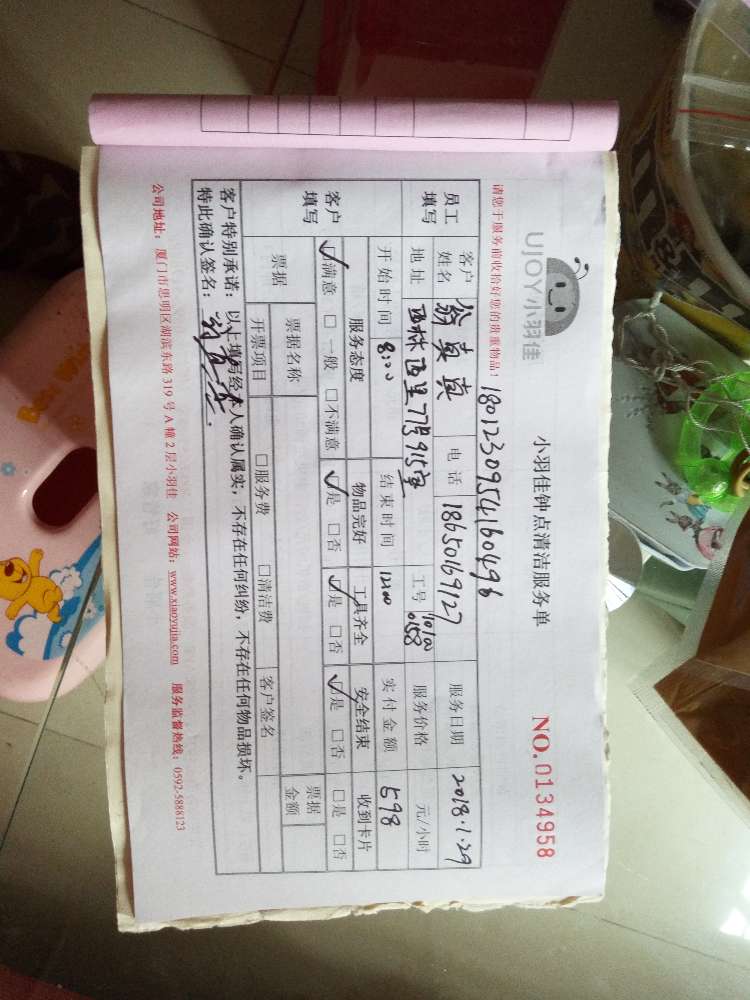 UJOY小羽佳
小羽佳钟点清洁服务单
NO.0134958
请您于服务前收拾好您的贵重物品！
180123095416049 6
员工填写
客户姓名 翁真真 电话 18650169127 服务日期 2018.1.29
地址 西林西里77号915室 工号 10100158 服务价格 元/小时
开始时间 8:00 结束时间 12:00 实付金额 598
客户填写
服务态度 物品完好 工具齐全 安全结束 收到卡片
☑满意 □一般 □不满意 ☑是 □否 ☑是 □否 ☑是 □否 □是 □否
票据 票据名称 客户签名 票据金额
开票项目 □服务费 □清洁费
客户特别承诺：以上填写经本人确认属实，不存在任何纠纷，不存在任何物品损坏。
特此确认签名：
公司地址：厦门市思明区湖滨东路 319 号 A 幢 2 层小羽佳 公司网站：www.xiaoyujia.com 服务监督热线：0592-5888123